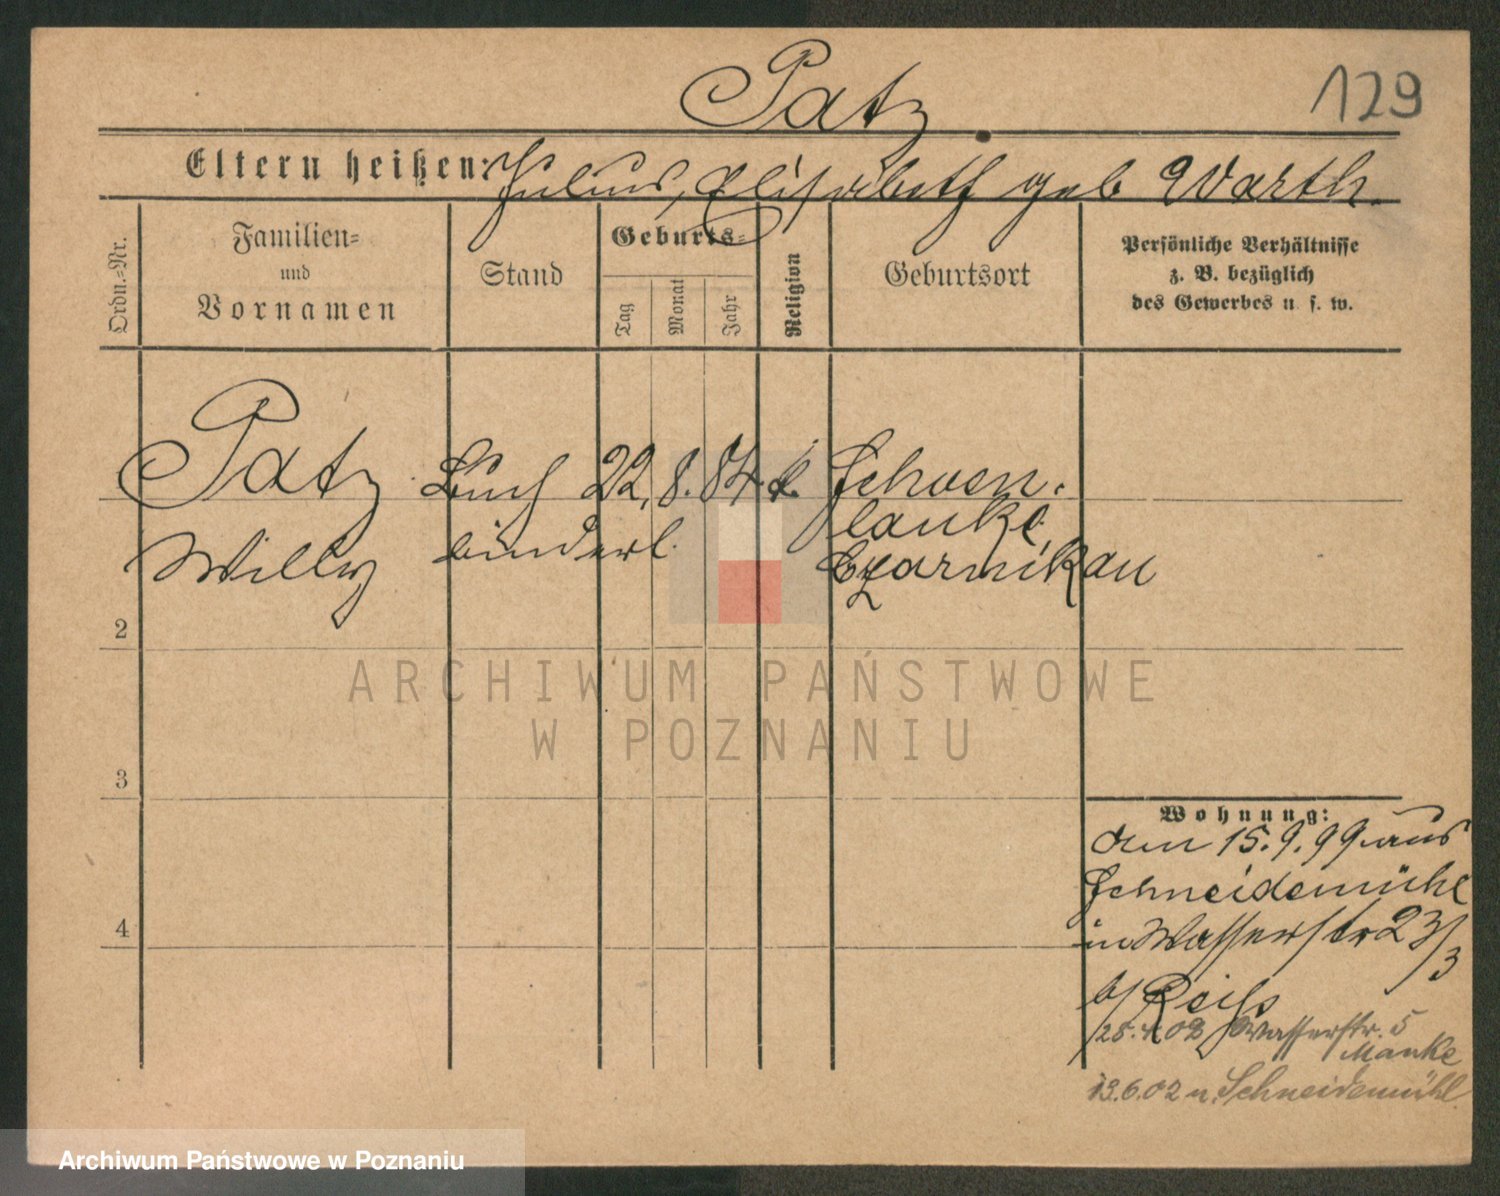 Patz
129
Eltern heißen: Julius, Elisabeth geb Warth.
Ordn.=Nr.
Familien=
und
Vornamen
Stand
Geburts=
Tag
Monat
Jahr
Religion
Geburtsort
Persönliche Verhältnisse
z. B. bezüglich
des Gewerbes u. s. w.
Patz Buch 22. 8. 84 k. Schoen.
lanke
Willy binderl. Czarnikau
2
3
4
ARCHIWUM PAŃSTWOWE
W POZNANIU
Wohnung:
den 15.9.99 aus
Schneidemühl
in Wasserstr 23/3
b/ Reiss
25.4.02 Wasserstr. 5
Manke
13.6.02 n. Schneidemühl
Archiwum Państwowe w Poznaniu